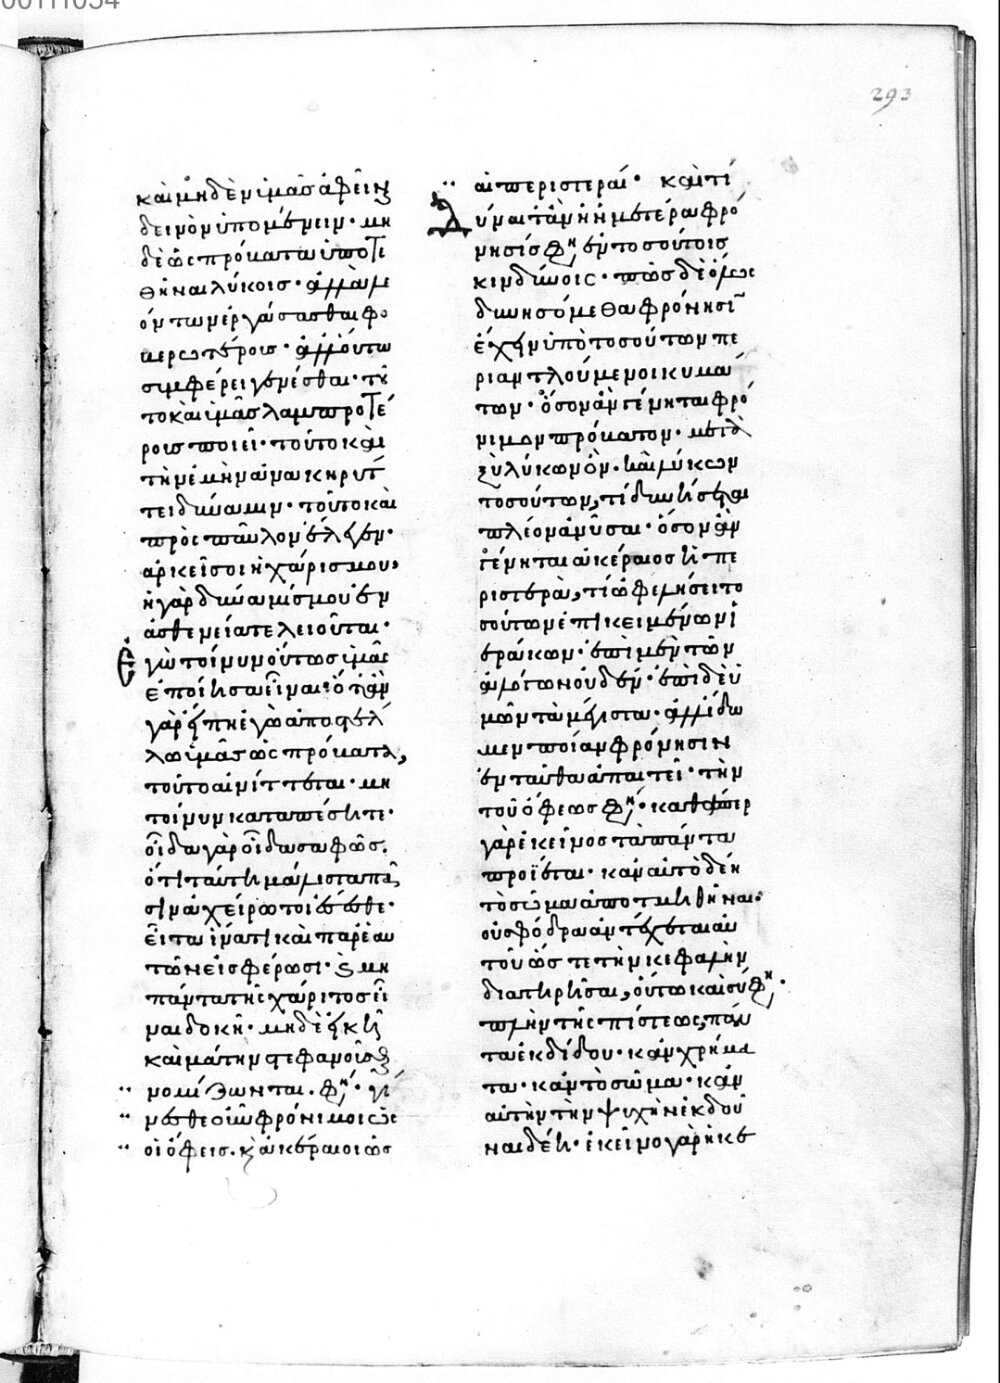 293
καὶ μηδὲν ὑμᾶς ἀφεῖν
δεινὸν ὑπομένειν· μη
δὲ ὡς πρόβατα ὑποτε
θῆναι λύκοις· ἀλλὰ με
ὸν των ἐργάσασθαι φο
βερωτέροις· ἀλλ' οὕτω
συμφέρει γενέσθαι· τοῦ
το καὶ ὑμᾶς λαμπροτέ
ρους ποιεῖ· τοῦτο καὶ
τὴν ἐμὴν ἀνακηρύτ
τει δύναμιν· τοῦτο καὶ
πρὸς παῦλον ἔλεγεν·
ἀρκεῖ σοι ἡ χάρις μου,
ἡ γὰρ δύναμίς μου ἐν
ἀσθενείᾳ τελειοῦται·
Ἐγὼ τοίνυν οὕτως ὑμᾶς
ἐποίησα εἶναι· ὅταν
γὰρ εἴπῃ ἐγὼ ἀποστέλ
λω ὑμᾶς ὡς πρόβατα,
τοῦτο αἰνίττεται· μὴ
τοίνυν καταπέσητε·
οἶδα γὰρ οἶδα σαφῶς.
ὅτι ταύτῃ μάλιστα πᾶ
σιν ἀχείρωτοι ἔσεσθε·
εἶτα ἵνα τι καὶ παρ' ἑαυ
τῶν εἰσφέρωσι· καὶ μὴ
πάντα τῆς χάριτος εἶ
ναι δοκῇ· μηδὲ εἰκῆ
καὶ μάτην στεφανοῦσθαι
νομίζωνται. φη(σίν)· γί
νεσθε οὖν φρόνιμοι ὡς
οἱ ὄφεις. κ(αὶ) ἀκέραιοι ὡς
αἱ περιστεραί· καὶ τί
Δύναιτ' ἂν ἡ ἡμετέρα φρό
νησίς φη(σιν) ἐν τοσούτοις
κινδύνοις· πῶς δὲ ὅλως
δυνησόμεθα φρόνησιν
ἔχειν ὑπὸ τοσούτων πε
ριαντλούμενοι κυμά
των· ὅσον ἂν γένηται φρό
νιμον πρόβατον· μετα
ξὺ λύκων ὂν· καὶ λύκων
τοσούτων, τί δυνήσεται
πλέον ἀνῦσαι· ὅσον ἂν
γένηται ἀκέραιος ἡ πε
ριστερὰ, τί ὠφελήσει το
σούτων ἐπικειμένων ἱ
εράκων· ἐπὶ μὲν τῶν
ἀλόγων οὐδέν· ἐπὶ δὲ ὑ
μῶν τὰ μέγιστα· ἀλλ' ἴδω
μεν ποίαν φρόνησιν
ἐνταῦθα ἀπαιτεῖ· τὴν
τοῦ ὄφεως φη(σίν)· καθάπερ
γὰρ ἐκεῖνος τὰ πάντα
προΐεται· κἂν αὐτὸ δέῃ
τὸ σῶμα ἀποτμηθῆναι·
οὐ σφόδρα ἀντέχεται αὐ
τοῦ ὥστε τὴν κεφαλὴν
διατηρῆσαι, οὕτω καὶ σύ φη(σιν)·
πλὴν τῆς πίστεως, πάν
τα ἐκδίδου· κἂν χρήμα
τα· κἂν τὸ σῶμα· κἂν
αὐτὴν τὴν ψυχὴν ἐκδοῦ
ναι δέῃ· ἐκεῖνο γάρ ἡ κε